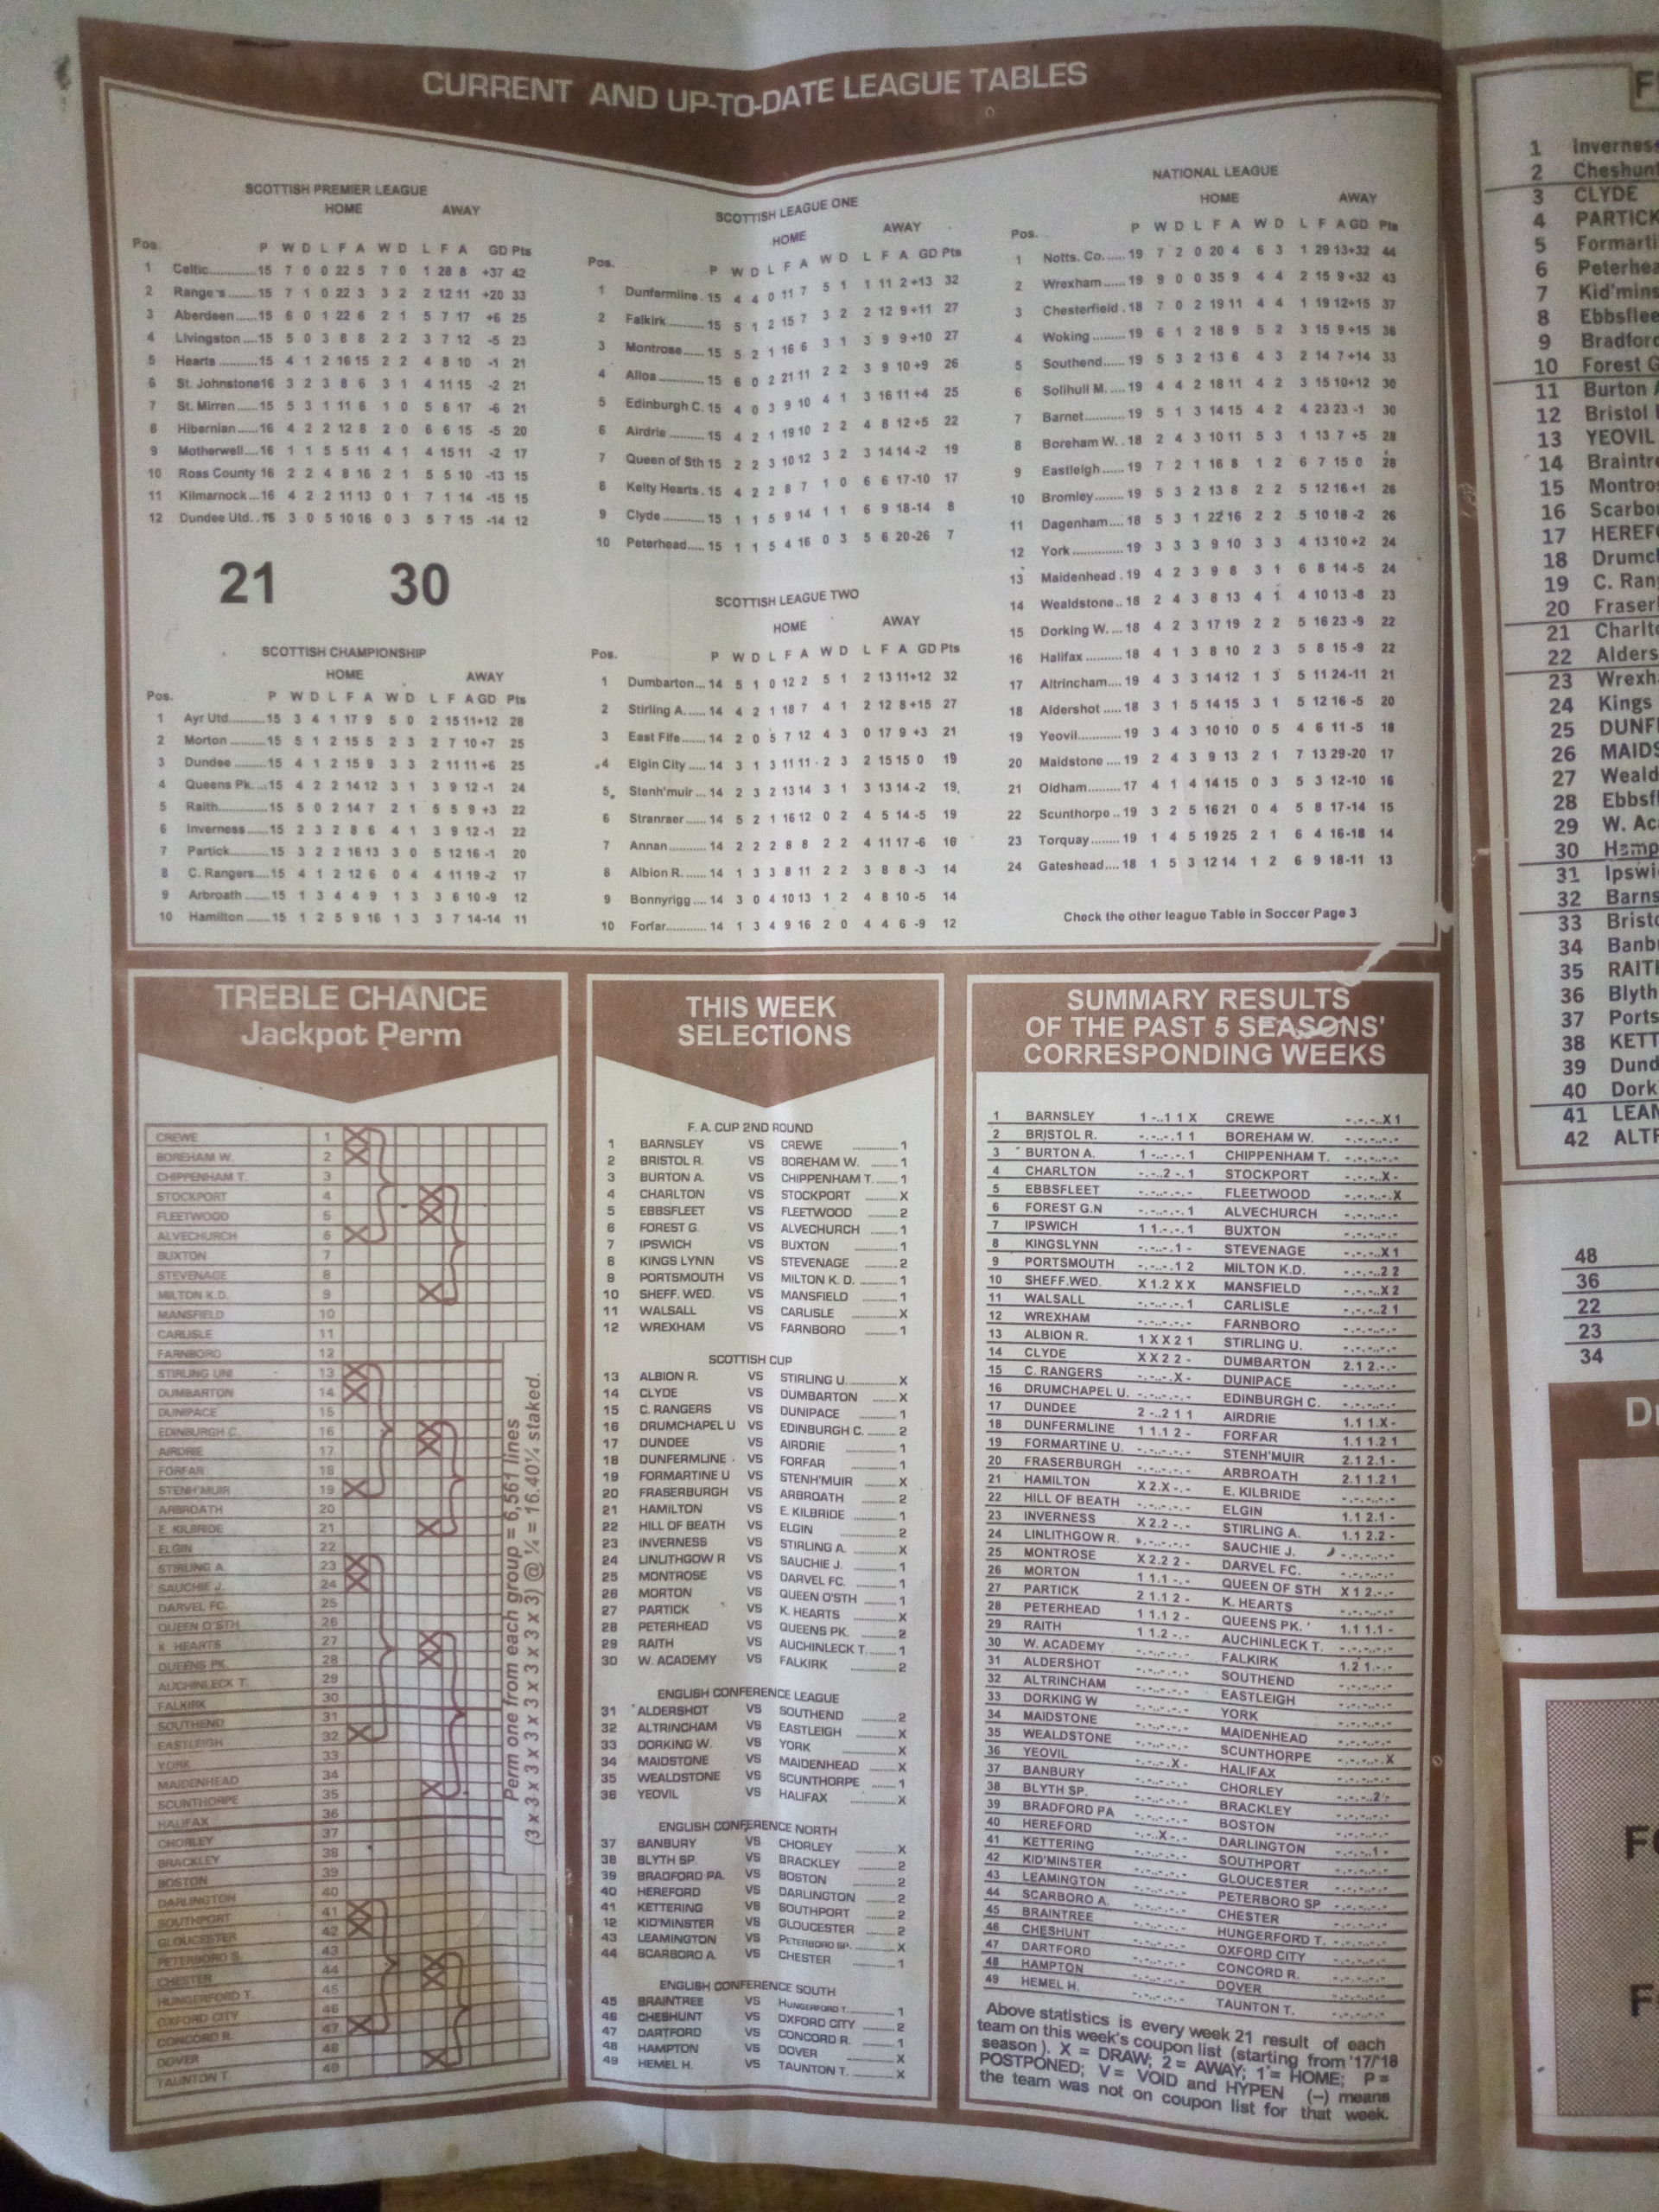 CURRENT AND UP-TO-DATE LEAGUE TABLES
SCOTTISH PREMIER LEAGUE
HOME AWAY
Pos. P W D L F A W D L F A GD Pts
1 Celtic............15 7 0 0 22 5 7 0 1 28 8 +37 42
2 Rangers.......15 7 1 0 22 3 3 2 2 12 11 +20 33
3 Aberdeen.....15 6 0 1 22 6 2 1 5 7 17 +6 25
4 Livingston....15 5 0 3 8 8 2 2 3 7 12 -5 23
5 Hearts..........15 4 1 2 16 15 2 2 4 8 10 -1 21
6 St. Johnstone16 3 2 3 8 6 3 1 4 11 15 -2 21
7 St. Mirren.....15 5 3 1 11 6 1 0 5 6 17 -6 21
8 Hibernian.....16 4 2 2 12 8 2 0 6 6 15 -5 20
9 Motherwell....16 1 1 5 5 11 4 1 4 15 11 -2 17
10 Ross County 16 2 2 4 8 16 2 1 5 5 10 -13 15
11 Kilmarnock...16 4 2 2 11 13 0 1 7 1 14 -15 15
12 Dundee Utd..16 3 0 5 10 16 0 3 5 7 15 -14 12
21 30
SCOTTISH CHAMPIONSHIP
HOME AWAY
Pos. P W D L F A W D L F A GD Pts
1 Ayr Utd..........15 3 4 1 17 9 5 0 2 15 11+12 28
2 Morton..........15 5 1 2 15 5 2 3 2 7 10 +7 25
3 Dundee.........15 4 1 2 15 9 3 3 2 11 11 +6 25
4 Queens Pk....15 4 2 2 14 12 3 1 3 9 12 -1 24
5 Raith.............15 5 0 2 14 7 2 1 5 5 9 +3 22
6 Inverness......15 2 3 2 8 6 4 1 3 9 12 -1 22
7 Partick..........15 3 2 2 16 13 3 0 5 12 16 -1 20
8 C. Rangers....15 4 1 2 12 6 0 4 4 11 19 -2 17
9 Arbroath.......15 1 3 4 4 9 1 3 3 6 10 -9 12
10 Hamilton.......15 1 2 5 9 16 1 3 3 7 14-14 11
SCOTTISH LEAGUE ONE
HOME AWAY
Pos. P W D L F A W D L F A GD Pts
1 Dunfermline . 15 4 4 0 11 7 5 1 1 11 2 +13 32
2 Falkirk.......... 15 5 1 2 15 7 3 2 2 12 9 +11 27
3 Montrose...... 15 5 2 1 16 6 3 1 3 9 9 +10 27
4 Alloa............. 15 6 0 2 21 11 2 2 3 9 10 +9 26
5 Edinburgh C. 15 4 0 3 9 10 4 1 3 16 11 +4 25
6 Airdrie.......... 15 4 2 1 19 10 2 2 4 8 12 +5 22
7 Queen of Sth 15 2 2 3 10 12 3 2 3 14 14 -2 19
8 Kelty Hearts. 15 4 2 2 8 7 1 0 6 6 17-10 17
9 Clyde............ 15 1 1 5 9 14 1 1 6 9 18-14 8
10 Peterhead..... 15 1 1 5 4 16 0 3 5 6 20-26 7
SCOTTISH LEAGUE TWO
HOME AWAY
Pos. P W D L F A W D L F A GD Pts
1 Dumbarton... 14 5 1 0 12 2 5 1 2 13 11+12 32
2 Stirling A...... 14 4 2 1 18 7 4 1 2 12 8 +15 27
3 East Fife....... 14 2 0 5 7 12 4 3 0 17 9 +3 21
4 Elgin City ..... 14 3 1 3 11 11 2 3 2 15 15 0 19
5 Stenh'muir ... 14 2 3 2 13 14 3 1 3 13 14 -2 19
6 Stranraer ...... 14 5 2 1 16 12 0 2 4 5 14 -5 19
7 Annan........... 14 2 2 2 8 8 2 2 4 11 17 -6 16
8 Albion R........ 14 1 3 3 8 11 2 2 3 8 8 -3 14
9 Bonnyrigg .... 14 3 0 4 10 13 1 2 4 8 10 -5 14
10 Forfar............ 14 1 3 4 9 16 2 0 4 4 6 -9 12
NATIONAL LEAGUE
HOME AWAY
Pos. P W D L F A W D L F A GD Pts
1 Notts. Co...... 19 7 2 0 20 4 6 3 1 29 13+32 44
2 Wrexham...... 19 9 0 0 35 9 4 4 2 15 9 +32 43
3 Chesterfield . 18 7 0 2 19 11 4 4 1 19 12+15 37
4 Woking......... 19 6 1 2 18 9 5 2 3 15 9 +15 36
5 Southend...... 19 5 3 2 13 6 4 3 2 14 7 +14 33
6 Solihull M. ... 19 4 4 2 18 11 4 2 3 15 10+12 30
7 Barnet........... 19 5 1 3 14 15 4 2 4 23 23 -1 30
8 Boreham W. . 18 2 4 3 10 11 5 3 1 13 7 +5 28
9 Eastleigh...... 19 7 2 1 16 8 1 2 6 7 15 0 28
10 Bromley........ 19 5 3 2 13 8 2 2 5 12 16 +1 26
11 Dagenham.... 18 5 3 1 22 16 2 2 5 10 18 -2 26
12 York.............. 19 3 3 3 9 10 3 3 4 13 10 +2 24
13 Maidenhead . 19 4 2 3 9 8 3 1 6 8 14 -5 24
14 Wealdstone .. 18 2 4 3 8 13 4 1 4 10 13 -8 23
15 Dorking W. ... 18 4 2 3 17 19 2 2 5 16 23 -9 22
16 Halifax.......... 18 4 1 3 8 10 2 3 5 8 15 -9 22
17 Altrincham.... 19 4 3 3 14 12 1 3 5 11 24-11 21
18 Aldershot ..... 18 3 1 5 14 15 3 1 5 12 16 -5 20
19 Yeovil............ 19 3 4 3 10 10 0 5 4 6 11 -5 18
20 Maidstone .... 19 2 4 3 9 13 2 1 7 13 29-20 17
21 Oldham......... 17 4 1 4 14 15 0 3 5 3 12-10 16
22 Scunthorpe .. 19 3 2 5 16 21 0 4 5 8 17-14 15
23 Torquay........ 19 1 4 5 19 25 2 1 6 4 16-18 14
24 Gateshead.... 18 1 5 3 12 14 1 2 6 9 18-11 13
Check the other league Table in Soccer Page 3
TREBLE CHANCE
Jackpot Perm
CREWE 1
BOREHAM W. 2
CHIPPENHAM T. 3
STOCKPORT 4
FLEETWOOD 5
ALVECHURCH 6
BUXTON 7
STEVENAGE 8
MILTON K.D. 9
MANSFIELD 10
CARLISLE 11
FARNBORO 12
STIRLING UNI 13
DUMBARTON 14
DUNIPACE 15
EDINBURGH C. 16
AIRDRIE 17
FORFAR 18
STENH'MUIR 19
ARBROATH 20
E. KILBRIDE 21
ELGIN 22
STIRLING A. 23
SAUCHIE J. 24
DARVEL FC. 25
QUEEN O'STH 26
K. HEARTS 27
QUEENS PK. 28
AUCHINLECK T. 29
FALKIRK 30
SOUTHEND 31
EASTLEIGH 32
YORK 33
MAIDENHEAD 34
SCUNTHORPE 35
HALIFAX 36
CHORLEY 37
BRACKLEY 38
BOSTON 39
DARLINGTON 40
SOUTHPORT 41
GLOUCESTER 42
PETERBORO S. 43
CHESTER 44
HUNGERFORD T. 45
OXFORD CITY 46
CONCORD R. 47
DOVER 48
TAUNTON T. 49
Perm one from each group = 6,561 lines
(3 x 3 x 3 x 3 x 3 x 3 x 3 x 3) @ ¼ = 16.40¼ staked.
THIS WEEK
SELECTIONS
F. A. CUP 2ND ROUND
1 BARNSLEY VS CREWE .......... 1
2 BRISTOL R. VS BOREHAM W. ........ 1
3 BURTON A. VS CHIPPENHAM T. ..... 1
4 CHARLTON VS STOCKPORT ....... X
5 EBBSFLEET VS FLEETWOOD ....... 2
6 FOREST G. VS ALVECHURCH ....... 1
7 IPSWICH VS BUXTON .......... 1
8 KINGS LYNN VS STEVENAGE ......... 2
9 PORTSMOUTH VS MILTON K. D. ....... 1
10 SHEFF. WED. VS MANSFIELD ......... 1
11 WALSALL VS CARLISLE .......... X
12 WREXHAM VS FARNBORO ......... 1
SCOTTISH CUP
13 ALBION R. VS STIRLING U. ....... X
14 CLYDE VS DUMBARTON ....... X
15 C. RANGERS VS DUNIPACE ......... 1
16 DRUMCHAPEL U VS EDINBURGH C. ..... 2
17 DUNDEE VS AIRDRIE .......... 1
18 DUNFERMLINE VS FORFAR .......... 1
19 FORMARTINE U VS STENH'MUIR ....... X
20 FRASERBURGH VS ARBROATH ......... 2
21 HAMILTON VS E. KILBRIDE ....... 1
22 HILL OF BEATH VS ELGIN .......... 2
23 INVERNESS VS STIRLING A. ....... X
24 LINLITHGOW R VS SAUCHIE J. ....... 1
25 MONTROSE VS DARVEL FC. ....... 1
26 MORTON VS QUEEN O'STH ....... 1
27 PARTICK VS K. HEARTS ......... X
28 PETERHEAD VS QUEENS PK. ....... 2
29 RAITH VS AUCHINLECK T. ..... 1
30 W. ACADEMY VS FALKIRK .......... 2
ENGLISH CONFERENCE LEAGUE
31 ALDERSHOT VS SOUTHEND ......... 2
32 ALTRINCHAM VS EASTLEIGH ......... X
33 DORKING W. VS YORK .......... X
34 MAIDSTONE VS MAIDENHEAD ....... X
35 WEALDSTONE VS SCUNTHORPE ....... 1
36 YEOVIL VS HALIFAX .......... X
ENGLISH CONFERENCE NORTH
37 BANBURY VS CHORLEY .......... X
38 BLYTH SP. VS BRACKLEY ......... 2
39 BRADFORD PA. VS BOSTON .......... 2
40 HEREFORD VS DARLINGTON ....... 2
41 KETTERING VS SOUTHPORT ....... 2
12 KID'MINSTER VS GLOUCESTER ....... 2
43 LEAMINGTON VS PETERBORO SP. ..... X
44 SCARBORO A. VS CHESTER .......... 1
ENGLISH CONFERENCE SOUTH
45 BRAINTREE VS HUNGERFORD T. ..... 1
46 CHESHUNT VS OXFORD CITY ....... 2
47 DARTFORD VS CONCORD R. ....... 1
48 HAMPTON VS DOVER .......... X
49 HEMEL H. VS TAUNTON T. ....... X
SUMMARY RESULTS
OF THE PAST 5 SEASONS'
CORRESPONDING WEEKS
1 BARNSLEY 1 -..1 1 X CREWE -.-.-..X 1
2 BRISTOL R. -.-..-.1 1 BOREHAM W. -.-..-.-.-
3 BURTON A. 1 -..-.-.1 CHIPPENHAM T. -.-..-.-.-
4 CHARLTON -.-..2 -.1 STOCKPORT -.-.-..X -
5 EBBSFLEET -.-..-.-.- FLEETWOOD -.-.-.-.X
6 FOREST G.N -.-..-.-.1 ALVECHURCH -.-..-.-.-
7 IPSWICH 1 1.-.-.1 BUXTON -.-..-.-.-
8 KINGSLYNN -.-..-.1 - STEVENAGE -.-.-..X 1
9 PORTSMOUTH -.-..-.1 2 MILTON K.D. -.-.-..2 2
10 SHEFF.WED. X 1.2 X X MANSFIELD -.-.-..X 2
11 WALSALL -.-..-.-.1 CARLISLE -.-.-..2 1
12 WREXHAM -.-..-.-.- FARNBORO -.-..-.-.-
13 ALBION R. 1 X X 2 1 STIRLING U. -.-..-.-.-
14 CLYDE X X 2 2 - DUMBARTON 2.1 2.-.-
15 C. RANGERS -.-..-.X - DUNIPACE -.-..-.-.-
16 DRUMCHAPEL U. -.-..-.-.- EDINBURGH C. -.-..-.-.-
17 DUNDEE 2 -..2 1 1 AIRDRIE 1.1 1.X -
18 DUNFERMLINE 1 1.1 2 - FORFAR 1.1 1.2 1
19 FORMARTINE U. -.-..-.-.- STENH'MUIR 2.1 2.1 -
20 FRASERBURGH -.-..-.-.- ARBROATH 2.1 1.2 1
21 HAMILTON X 2.X -.- E. KILBRIDE -.-..-.-.-
22 HILL OF BEATH -.-..-.-.- ELGIN 1.1 2.1 -
23 INVERNESS X 2.2 -.- STIRLING A. 1.1 2.2 -
24 LINLITHGOW R. -.-..-.-.- SAUCHIE J. -.-..-.-.-
25 MONTROSE X 2.2 2 - DARVEL FC. -.-..-.-.-
26 MORTON 1 1.1 -.- QUEEN OF STH X 1 2.-.-
27 PARTICK 2 1.1 2 - K. HEARTS -.-..-.-.-
28 PETERHEAD 1 1.1 2 - QUEENS PK. 1.1 1.1 -
29 RAITH 1 1.2 -.- AUCHINLECK T. -.-..-.-.-
30 W. ACADEMY -.-..-.-.- FALKIRK 1.2 1.-.-
31 ALDERSHOT -.-..-.-.- SOUTHEND -.-..-.-.-
32 ALTRINCHAM -.-..-.-.- EASTLEIGH -.-..-.-.-
33 DORKING W -.-..-.-.- YORK -.-..-.-.-
34 MAIDSTONE -.-..-.-.- MAIDENHEAD -.-..-.-.-
35 WEALDSTONE -.-..-.-.- SCUNTHORPE -.-.-.-.X
36 YEOVIL -.-.-.X - HALIFAX -.-..-.-.-
37 BANBURY -.-..-.-.- CHORLEY -.-.-..2 -
38 BLYTH SP. -.-..-.-.- BRACKLEY -.-..-.-.-
39 BRADFORD PA -.-..-.-.- BOSTON -.-..-.-.-
40 HEREFORD -.-..X -.- DARLINGTON -.-.-..1 -
41 KETTERING -.-..-.-.- SOUTHPORT -.-..-.-.-
42 KID'MINSTER -.-..-.-.- GLOUCESTER -.-..-.-.-
43 LEAMINGTON -.-..-.-.- PETERBORO SP -.-..-.-.-
44 SCARBORO A. -.-..-.-.- CHESTER -.-..-.-.-
45 BRAINTREE -.-..-.-.- HUNGERFORD T. -.-..-.-.-
46 CHESHUNT -.-..-.-.- OXFORD CITY -.-..-.-.-
47 DARTFORD -.-..-.-.- CONCORD R. -.-..-.-.-
48 HAMPTON -.-..-.-.- DOVER -.-..-.-.-
49 HEMEL H. -.-..-.-.- TAUNTON T. -.-..-.-.-
Above statistics is every week 21 result of each
team on this week's coupon list (starting from '17/'18
season). X = DRAW; 2 = AWAY; 1 = HOME; P =
POSTPONED; V = VOID and HYPEN (–) means
the team was not on coupon list for that week.
1 Inverness
2 Cheshunt
3 CLYDE
4 PARTICK
5 Formarti
6 Peterhea
7 Kid'mins
8 Ebbsflee
9 Bradford
10 Forest G
11 Burton A
12 Bristol
13 YEOVIL
14 Braintre
15 Montros
16 Scarbo
17 HEREF
18 Drumch
19 C. Ran
20 Fraser
21 Charlt
22 Alders
23 Wrexh
24 Kings
25 DUNF
26 MAIDS
27 Weald
28 Ebbsf
29 W. Ac
30 Hamp
31 Ipswi
32 Barns
33 Brist
34 Banb
35 RAIT
36 Blyth
37 Ports
38 KETT
39 Dund
40 Dork
41 LEAM
42 ALTR
48
36
22
23
34